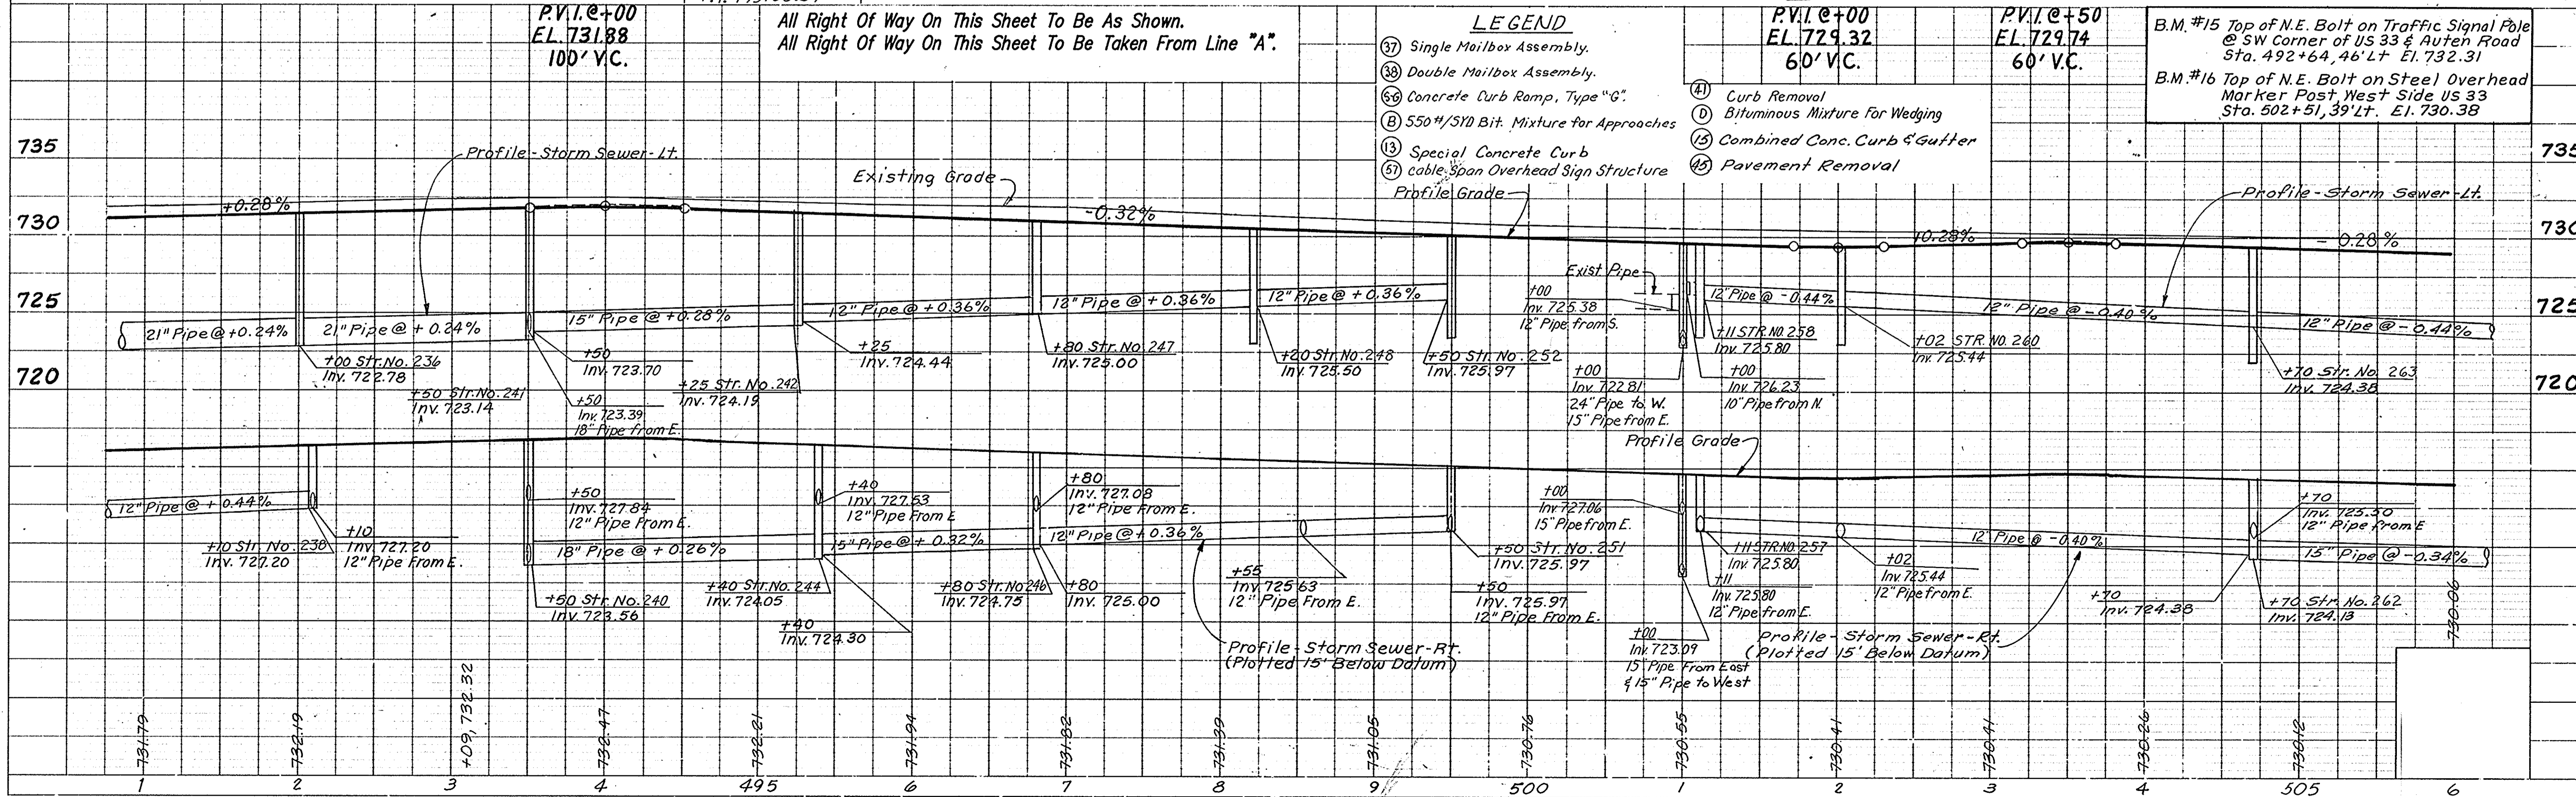 P.V.I. @ +00
EL. 731.88
100' V.C.
All Right Of Way On This Sheet To Be As Shown.
All Right Of Way On This Sheet To Be Taken From Line "A".
LEGEND
37 Single Mailbox Assembly.
38 Double Mailbox Assembly.
56 Concrete Curb Ramp, Type "G".
B 550 #/SYD Bit. Mixture for Approaches
13 Special Concrete Curb
57 cable Span Overhead Sign Structure
41 Curb Removal
D Bituminous Mixture For Wedging
15 Combined Conc. Curb & Gutter
45 Pavement Removal
P.V.I. @ +00
EL. 729.32
60' V.C.
P.V.I. @ +50
EL. 729.74
60' V.C.
B.M. #15 Top of N.E. Bolt on Traffic Signal Pole
@ SW Corner of US 33 & Auten Road
Sta. 492+64, 46' Lt El. 732.31
B.M. #16 Top of N.E. Bolt on Steel Overhead
Marker Post, West Side US 33
Sta. 502+51, 39' Lt. El. 730.38
735
735
Profile-Storm Sewer-Lt.
Existing Grade
Profile Grade
Profile-Storm Sewer-Lt.
730
730
+0.28%
-0.32%
+0.28%
-0.28%
725
725
21" Pipe @ +0.24%
21" Pipe @ +0.24%
15" Pipe @ +0.28%
12" Pipe @ +0.36%
12" Pipe @ +0.36%
12" Pipe @ +0.36%
Exist Pipe
12" Pipe @ -0.44%
12" Pipe @ -0.40%
12" Pipe @ -0.44%
+00 Str. No. 236
Inv. 722.78
+50 Str. No. 241
Inv. 723.14
+50
Inv. 723.70
+50
Inv. 723.39
18" Pipe from E.
+25 Str. No. 242
Inv. 724.19
+25
Inv. 724.44
+80 Str. No. 247
Inv. 725.00
+20 Str. No. 248
Inv. 725.50
+50 Str. No. 252
Inv. 725.97
+00
Inv. 725.38
12" Pipe from S.
+00
Inv. 722.81
24" Pipe to W.
15" Pipe from E.
+11 STR. NO. 258
Inv. 725.80
+00
Inv. 726.23
10" Pipe from N.
+02 STR. NO. 260
Inv. 725.44
+70 Str. No. 263
Inv. 724.38
720
720
Profile Grade
12" Pipe @ +0.44%
+10 Str. No. 238
Inv. 727.20
+10
Inv. 727.20
12" Pipe From E.
+50
Inv. 727.84
12" Pipe From E.
18" Pipe @ +0.26%
+50 Str. No. 240
Inv. 723.56
+40
Inv. 727.53
12" Pipe From E
15" Pipe @ +0.32%
+40 Str. No. 244
Inv. 724.05
+40
Inv. 724.30
+80
Inv. 727.08
12" Pipe From E.
12" Pipe @ +0.36%
+80 Str. No. 246
Inv. 724.75
+80
Inv. 725.00
+55
Inv. 725.63
12" Pipe From E.
+50 Str. No. 251
Inv. 725.97
+50
Inv. 725.97
12" Pipe From E.
+00
Inv. 727.06
15" Pipe from E.
+11 STR. NO. 257
Inv. 725.80
+11
Inv. 725.80
12" Pipe from E.
+00
Inv. 723.09
15" Pipe From East
& 15" Pipe to West
12" Pipe @ -0.40%
+02
Inv. 725.44
12" Pipe from E.
+70
Inv. 724.38
+70
Inv. 725.50
12" Pipe from E
15" Pipe @ -0.34%
+70 Str. No. 262
Inv. 724.13
Profile-Storm Sewer-Rt.
(Plotted 15' Below Datum)
Profile-Storm Sewer-Rt.
(Plotted 15' Below Datum)
731.79
732.19
+09, 732.32
732.47
732.21
731.94
731.82
731.39
731.05
730.76
730.55
730.41
730.41
730.26
730.12
730.06
1 2 3 4 495 6 7 8 9 500 1 2 3 4 505 6